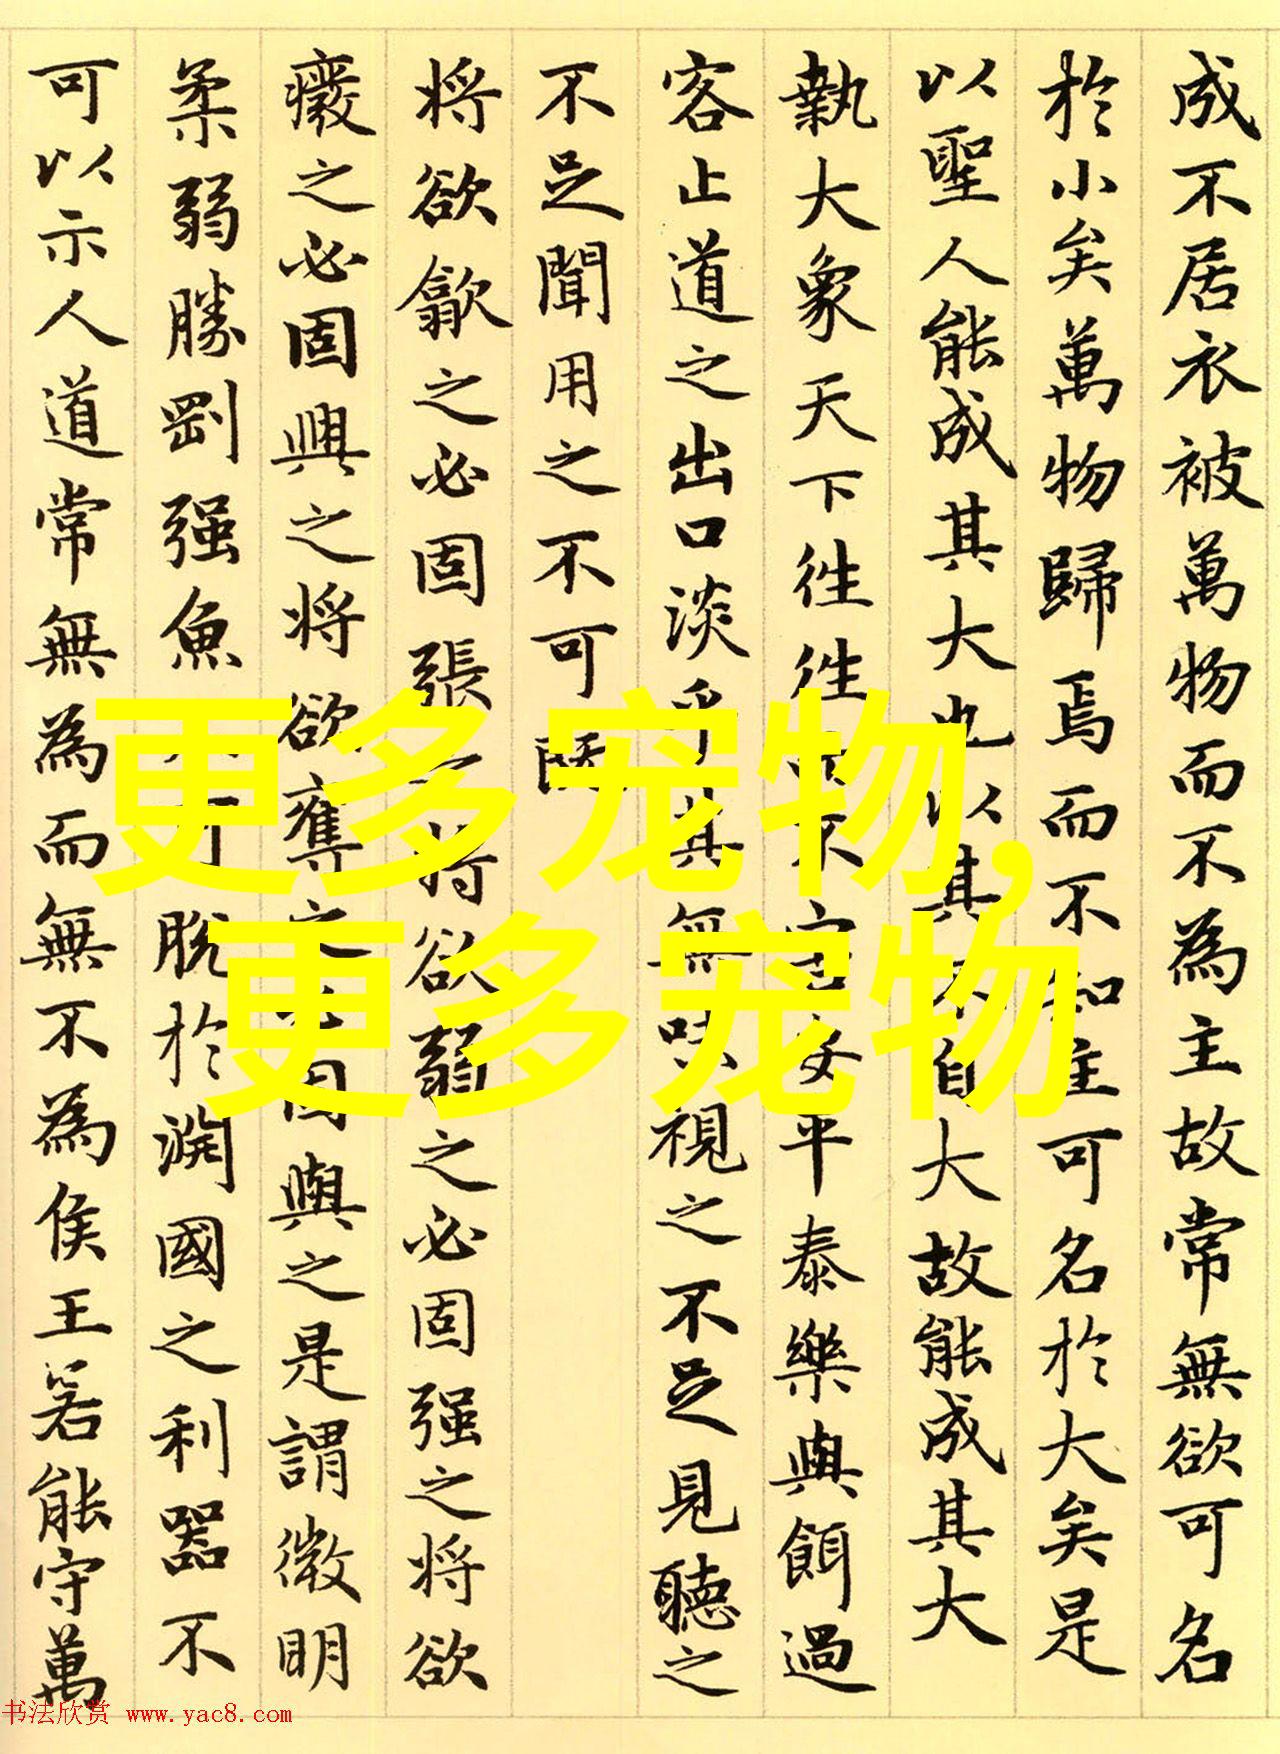 成不居衣被萬物而不為主故常無欲可名
於小矣萬物歸焉而不知主可名於大矣是
以聖人能成其大也以其不自大故能成其大
執大象天下往往而不害安平泰樂與餌過
客止道之出口淡乎其無味視之不足見聽之
不足聞用之不可既
将欲歙之必固張之将欲弱之必固强之将欲
癈之必固興之将欲奪之必固與之是謂微明
柔弱勝剛强魚不可脱於淵國之利器不
可以示人道常無為而無不為侯王若能守萬
更多宠物,
更多宠物
书法欣赏 www.yac8.com